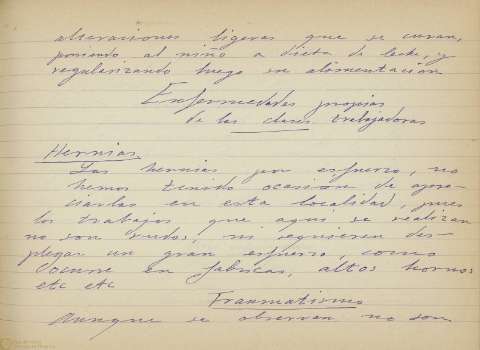 alteraciones ligeras que se curan,
poniendo al niño a dieta de leche, y
regularizando luego su alimentación
Enfermedades propias
de las clases trabajadoras
Hernias
Las hernias por esfuerzo, no
hemos tenido ocasión de apre-
ciarlas en esta localidad, pues
los trabajos que aqui se realizan
no son rudos, ni requieren des-
plegar un gran esfuerzo, como
ocurre en fabricas, altos hornos
etc etc
Traumatismos
Aunque se observan no son